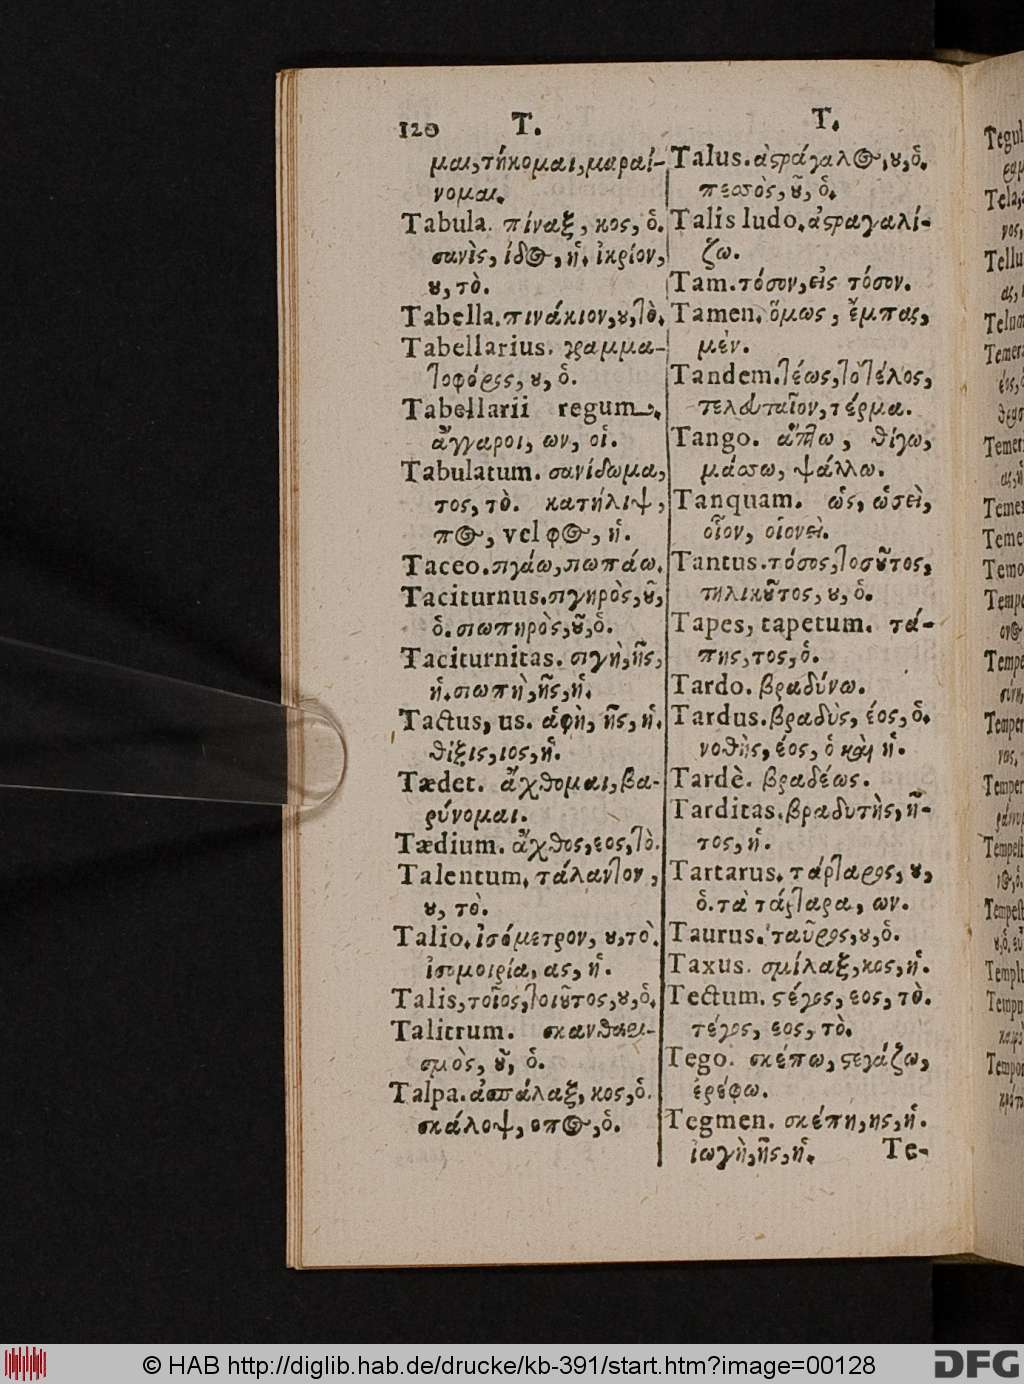 120 T. T.
μαι, τήκομαι, μαραί-
νομαι.
Tabula. πίναξ, κος, ὁ.
σανὶς, ίδος, ἡ. ἰκρίον,
ου, τὸ.
Tabella. πινάκιον, ου, τὸ.
Tabellarius. γραμμα-
τοφόρος, ου, ὁ.
Tabellarii regum.
ἄγγαροι, ων, οἱ.
Tabulatum. σανίδωμα,
τος, τὸ. κατήλιψ,
πος, vel φος, ἡ.
Taceo. σιγάω, σιωπάω.
Taciturnus. σιγηρὸς, οῦ,
ὁ. σιωπηρὸς, οῦ, ὁ.
Taciturnitas. σιγὴ, ῆς,
ἡ. σιωπὴ, ῆς, ἡ.
Tactus, us. ἁφὴ, ῆς, ἡ.
θίξις, ιος, ἡ.
Tædet. ἄχθομαι, βα-
ρύνομαι.
Tædium. ἄχθος, εος, τὸ.
Talentum. τάλαντον,
ου, τὸ.
Talio. ἰσόμετρον, ου, τὸ.
ἰσομοιρία, ας, ἡ.
Talis, τοῖος, τοιοῦτος, ου, ὁ.
Talitrum. σκανθαρι-
σμὸς, οῦ, ὁ.
Talpa. ἀσπάλαξ, κος, ὁ.
σκάλοψ, οπος, ὁ.
Talus. ἀστράγαλος, ου, ὁ.
πεσσὸς, οῦ, ὁ.
Talis ludo. ἀστραγαλί-
ζω.
Tam. τόσον, εἰς τόσον.
Tamen. ὅμως, ἔμπας,
μέν.
Tandem. τέως, τὸ τέλος,
τελευταῖον, τέρμα.
Tango. ἅπτω, θίγω,
μάσσω, ψάλλω.
Tanquam. ὡς, ὡσεὶ,
οἷον, οἱονεὶ.
Tantus. τόσος, τοσοῦτος,
τηλικοῦτος, ου, ὁ.
Tapes, tapetum. τά-
πης, τος, ὁ.
Tardo. βραδύνω.
Tardus. βραδὺς, έος, ὁ.
νοθὴς, έος, ὁ καὶ ἡ.
Tardè. βραδέως.
Tarditas. βραδυτὴς, ῆ-
τος, ἡ.
Tartarus. τάρταρος, ου,
ὁ. τὰ τάρταρα, ων.
Taurus. ταῦρος, ου, ὁ.
Taxus. σμίλαξ, κος, ἡ.
Tectum. στέγος, εος, τὸ.
τέγος, εος, τὸ.
Tego. σκέπω, στεγάζω,
ἐρέφω.
Tegmen. σκέπη, ης, ἡ.
ἰωγὴ, ῆς, ἡ. Te-
© HAB http://diglib.hab.de/drucke/kb-391/start.htm?image=00128
DFG